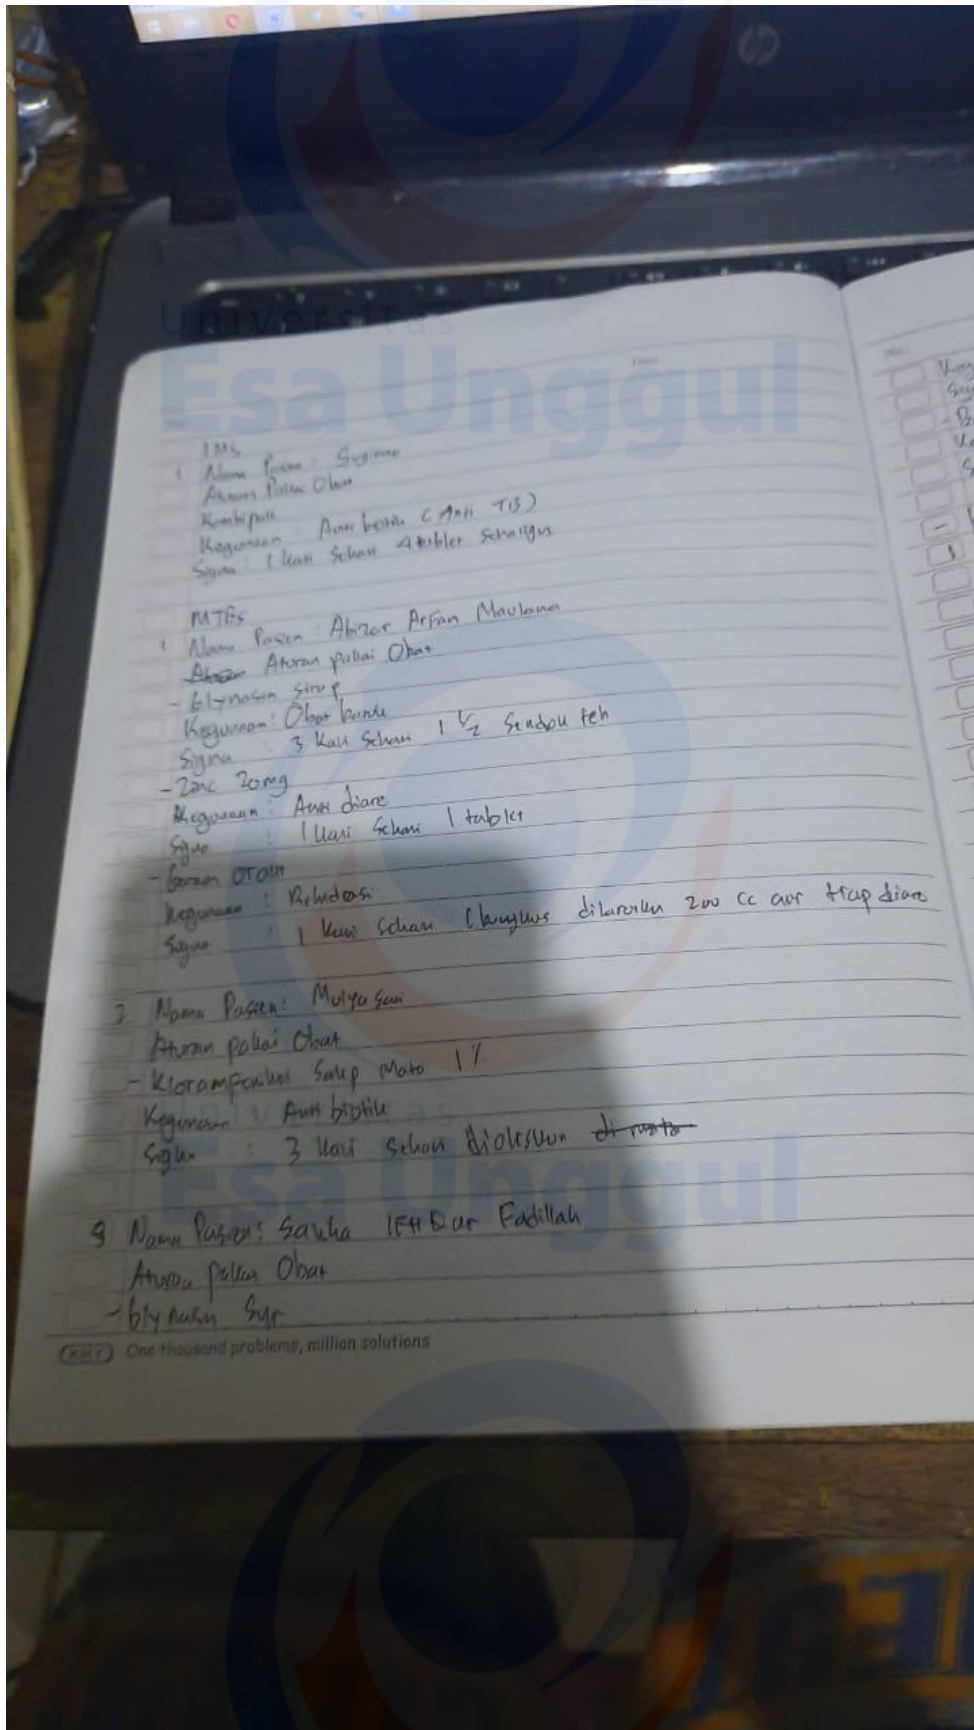 hp
Universitas
Esa Unggul
IMS
1 Nama Pasien : Sugi
Aturan Pakai Obat
Kombipak
Kegunaan : Anti biotik (Anti TB)
Signa : 1 kali Sehari 4 tablet Sekaligus
MTBS
1 Nama Pasien : Abizar Arfan Maulana
Aturan pakai Obat
- Glynasin sirup
Kegunaan : Obat batuk
Signa : 3 kali Sehari 1 1/2 Sendok teh
- Zinc 20mg
Kegunaan : Anti diare
Signa : 1 kali Sehari 1 tablet
- Garam Oralit
Kegunaan : Rehidrasi
Signa : 1 kali Sehari 1 bungkus dilarutkan 200 cc air tiap diare
2 Nama Pasien : Mulya Sari
Aturan pakai Obat
- Kloramfenikol Salep Mata 1%
Kegunaan : Anti biotik
Signa : 3 kali Sehari dioleskan di mata
Universitas
Esa Unggul
3 Nama Pasien : Sakha Iftidar Fadillah
Aturan pakai Obat
- Glynasin Syr
KKY One thousand problems, million solutions